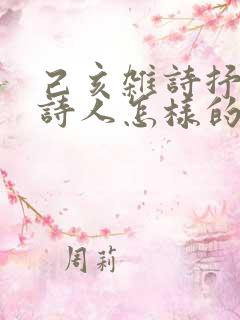 己亥雜詩抒
詩人怎樣的
周莉